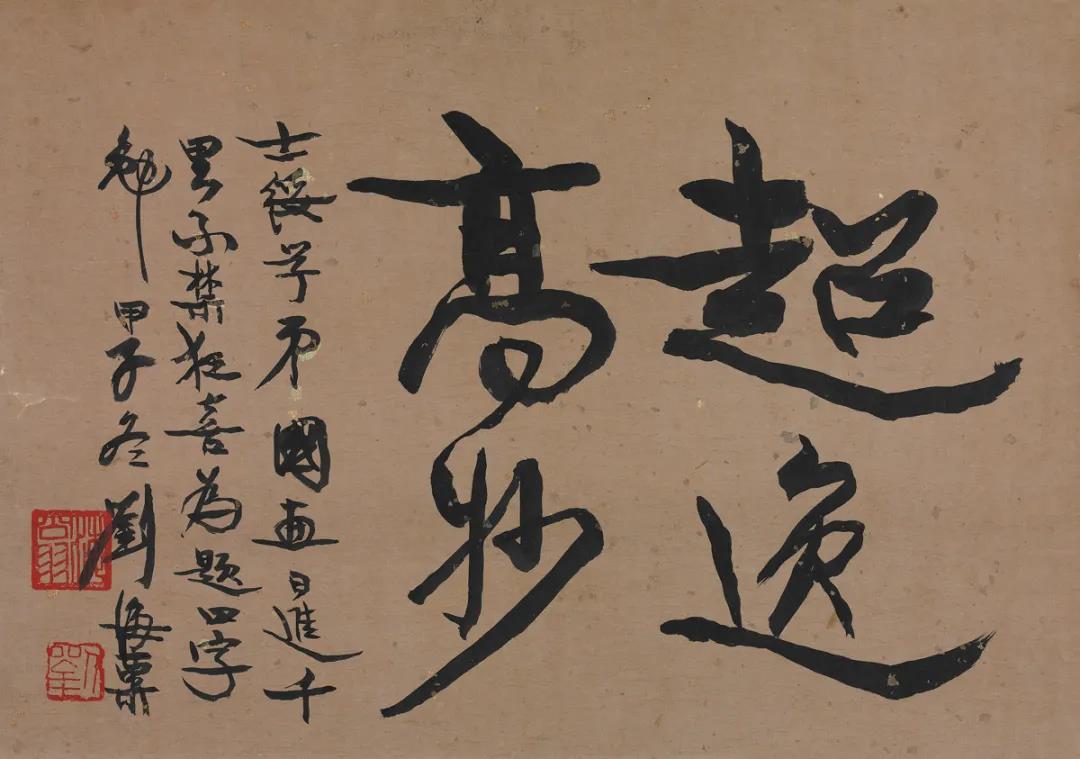 超逸
高妙
士綏学弟國画日進千
里不禁狂喜為題四字
勉 甲子冬 劉海粟
海翁
劉